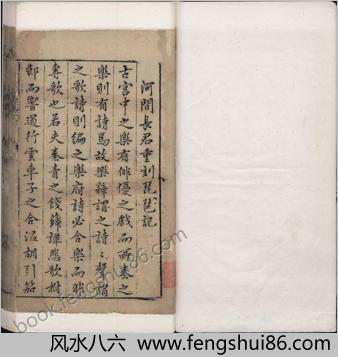 河間長君重刻琵琶記
古宮中之樂有俳優之戲而所奏之
樂則有詩焉故樂辭謂之詩〻聲謂
之歌詩則編之樂府詩必合樂而非
矣歌也若夫秦青之餞薛譚悲歌
而響遏行雲車子之合溫胡引笳
book.fengshui86.com
风水八六 www.fengshui86.com